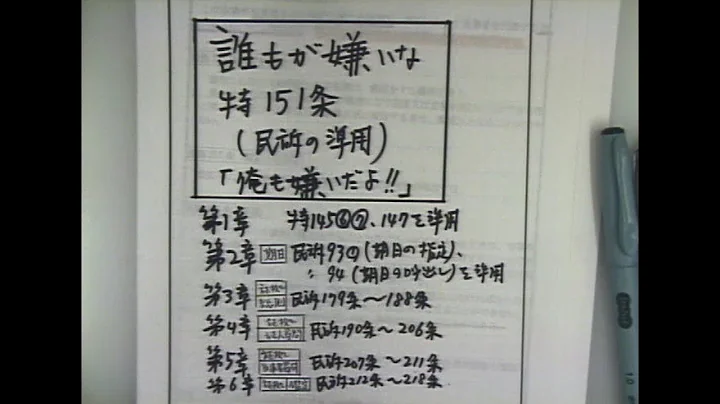 誰もが嫌いな
特151条
(民訴の準用)
「俺も嫌いだよ!!」
第1章 特145⑥⑦、147を準用
第2章 期日 民訴93①(期日の指定)、
〃 94(期日の呼出し)を準用
第3章 証拠 民訴179条〜188条
第4章 証拠 民訴190条〜206条
第5章 証拠 民訴207条〜211条
第6章 証拠 鑑定 民訴212条〜218条